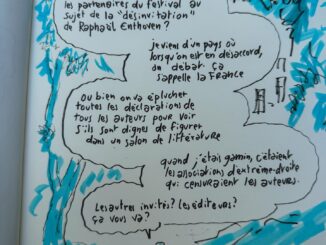 les partenaires du festival au
sujet de la "désinvitation"
de Raphaël Enthoven ?
je viens d'un pays où
lorsqu'on est en désaccord,
on débat, ça
s'appelle la France
Ou bien on va éplucher
toutes les déclarations de
tous les auteurs pour voir
s'ils sont dignes de figurer
dans un salon de littérature
quand j'étais gamin, c'étaient
les associations d'extrême-droite
qui censuraient les auteurs.
Les autres invités ? Les éditeurs ?
ça vous va ?